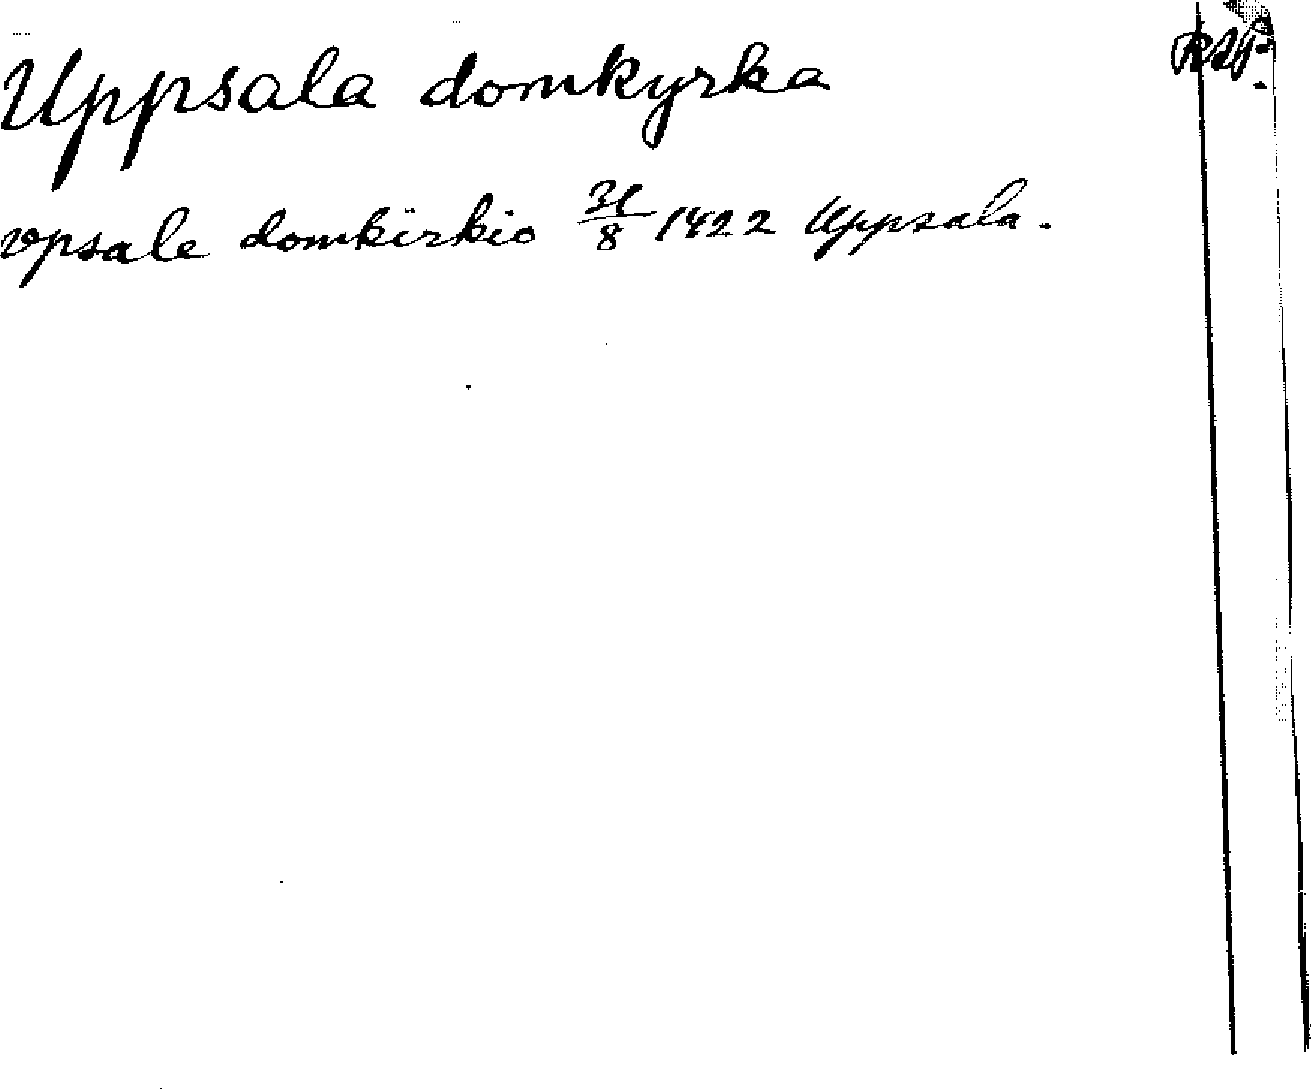 Uppsala domkyrka
RAP.
vpsale domkirkio 31/8 1422 Uppsala.